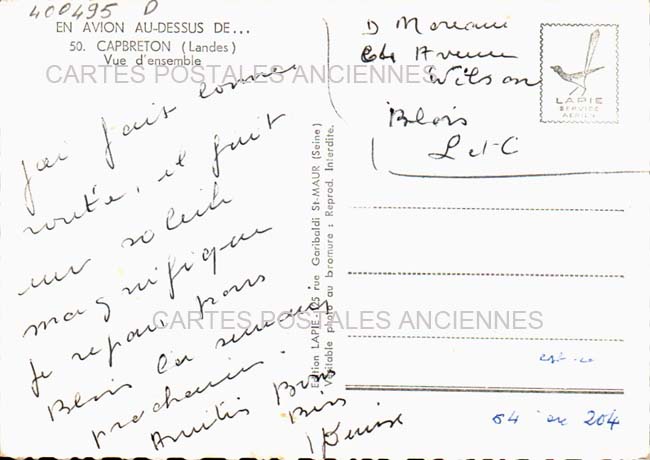 400495 D
EN AVION AU-DESSUS DE...
50. CAPBRETON (Landes)
Vue d'ensemble
CARTES POSTALES ANCIENNES
J'ai fait bonne
route, il fait
un soleil
magnifique
Je repars pour
Blois la semaine
prochaine.
Amitiés Bons
Bises
Denise
Edition LAPIE - 125 rue Garibaldi St-MAUR (Seine)
Véritable photo au bromure : Reprod. Interdite.
D Moreau
64 Avenue
Wilson
Blois
L et C
LAPIE
SERVICE
AERIEN
CARTES POSTALES ANCIENNES
64 204